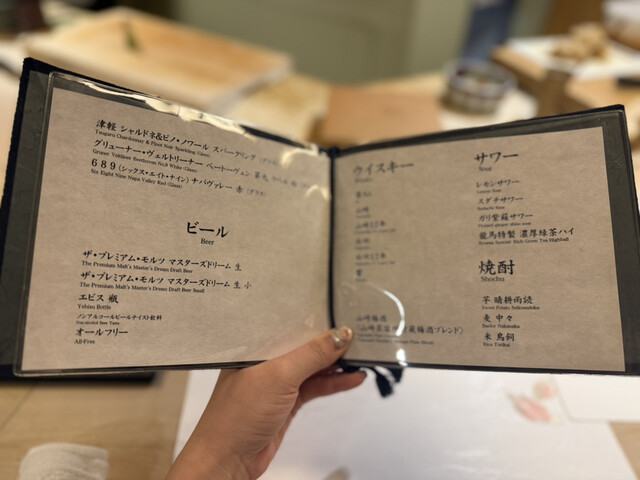 津軽 シャルドネ&ピノ・ノワール スパークリング (グラス)
Tsugaru Chardonnay & Pinot Noir Sparkling (Glass)
グリューナー・ヴェルトリーナー ベートーヴェン 第九
Gruner Veltliner Beethoven No.9 White (Glass)
689 (シックス・エイト・ナイン) ナパヴァレー 赤 (グラス)
Six Eight Nine Napa Valley Red (Glass)
ビール
Beer
ザ・プレミアム・モルツ マスターズドリーム 生
The Premium Malt's Master's Dream Draft Beer
ザ・プレミアム・モルツ マスターズドリーム 生 小
The Premium Malt's Master's Dream Draft Beer Small
エビス 瓶
Yebisu Bottle
ノンアルコールビールテイスト飲料
Non-alcohol Beer Taste
オールフリー
All-Free
ウイスキー
山崎
山崎12年
白州
白州12年
響
山崎梅酒
サワー
Sour
レモンサワー
Lemon Sour
スダチサワー
Sudachi Sour
ガリ紫蘇サワー
龍馬特製 濃厚緑茶ハイ
Ryoma Special Rich Green Tea Highball
焼酎
Shochu
芋 晴耕雨読
Sweet Potato Seikoudoku
麦 中々
Barley Nakanaka
米 鳥飼
Rice Torikai